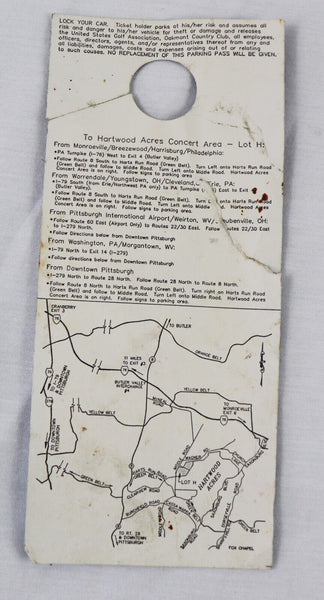 LOCK YOUR CAR. Ticket holder parks at his/her risk and assumes all
risk and danger to his/her vehicle for theft or damage and releases
the United States Golf Association, Oakmont Country Club, all employees,
officers, directors, agents, and/or representatives thereof from any and
all liabilities, damages, costs and expenses arising out of or relating
to such causes. NO REPLACEMENT OF THIS PARKING PASS WILL BE GIVEN.
To Hartwood Acres Concert Area - Lot H:
From Monroeville/Breezewood/Harrisburg/Philadelphia:
• PA Turnpike (I-76) West to Exit 4 (Butler Valley)
• Follow Route 8 South to Harts Run Road (Green Belt). Turn Left onto Harts Run Road
(Green Belt) and follow to Middle Road. Turn Left onto Middle Road. Hartwood Acres
Concert Area is on right. Follow signs to parking area
From Warrendale/Youngstown, OH/Cleveland, Erie, PA:
• I-79 South (from Erie/Northwest PA only) to PA Turnpike East to Exit
(Butler Valley)
• Follow Route 8 South to Harts Run Road (Green Belt). Turn Left onto Harts Run Road
(Green Belt) and follow to Middle Road. Turn Left onto Middle Road. Hartwood Acres
Concert Area is on right. Follow signs to parking area
From Pittsburgh International Airport/Weirton, WV/ ubenville, OH:
• Follow Route 60 East (Airport Only) to Routes 22/30 East. Follow Routes 22/30 East
to I-279 North
• Follow Directions below from Downtown Pittsburgh
From Washington, PA/Morgantown, WV:
• I-79 North to Exit 14 (I-279)
• Follow directions below from Downtown Pittsburgh
From Downtown Pittsburgh
• I-279 North to Route 28 North. Follow Route 28 North to Route 8 North.
• Follow Route 8 North to Harts Run Road (Green Belt). Turn right on Harts Run Road
(Green Belt) and follow to Middle Road. Turn Left onto Middle Road. Hartwood Acres
Concert Area is on right. Follow signs to parking area.
CRANBERRY
EXIT 3
TO BUTLER
ORANGE BELT
11 MILES
TO EXIT
BUTLER VALLEY
INTERCHANGE
YELLOW BELT
TO
MONROEVILLE
EXIT 6
YELLOW BELT
TO I-79
& DOWNTOWN
PITTSBURGH
TO DOWNTOWN
PITTSBURGH
GREEN BELT
LOT H
HARTWOOD
ACRES
ROAD
TO RT. 28
& DOWNTOWN
PITTSBURGH
FOX CHAPEL